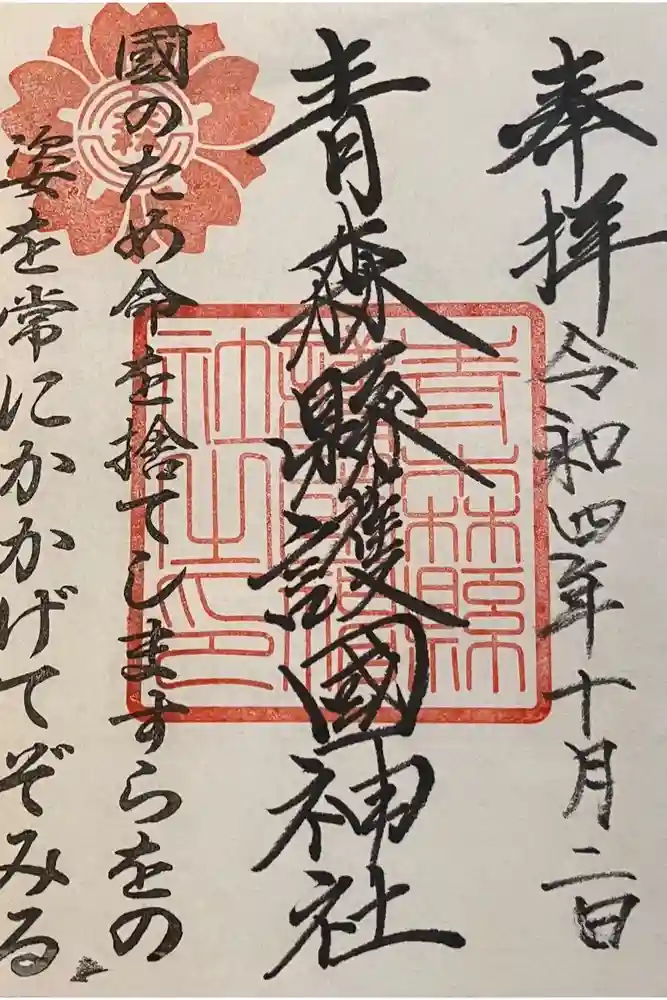 奉拝 令和四年十月二日
青森縣護國神社
國のため命を捨てしますらをの
姿を常にかかげてぞみる
青森縣
護國神
社之印
森